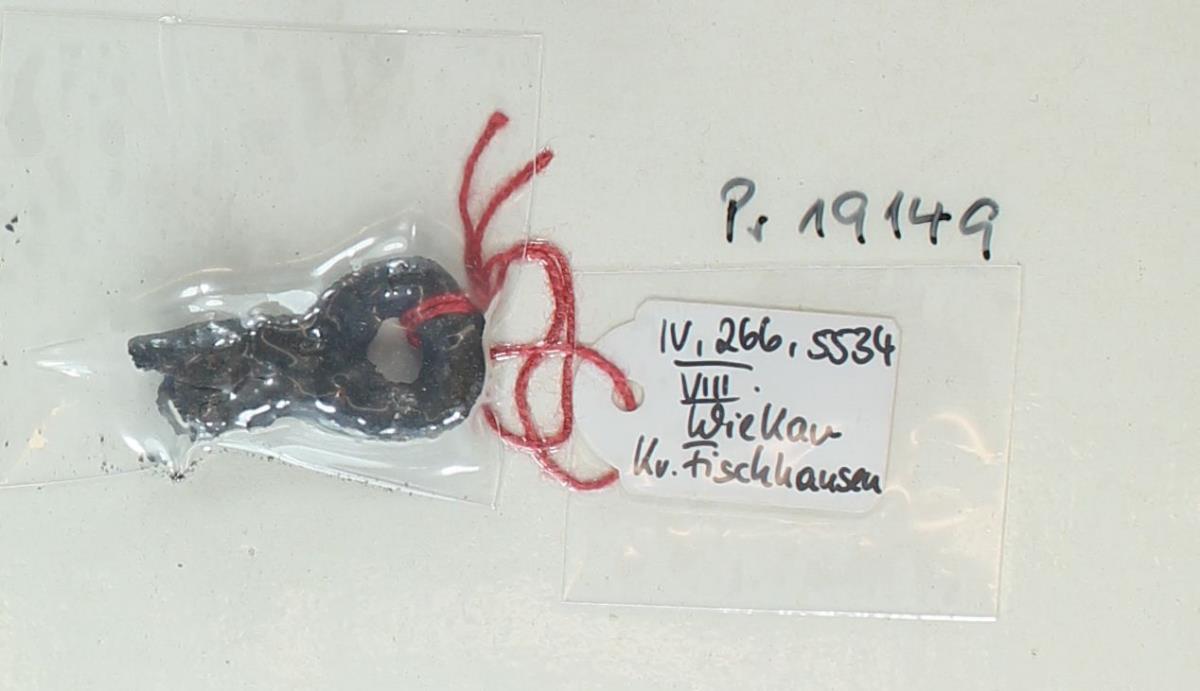 Pr 19149
IV, 266, 5534
VIII.
Wiekau
Kr. Fischhausen